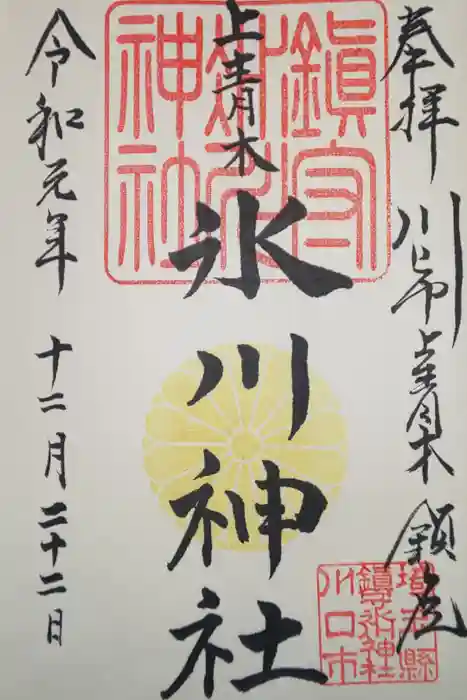 奉拝
川口市上青木鎮座
上青木
氷川神社
令和元年 十二月二十二日
埼玉縣
鎮守氷川神社
川口市